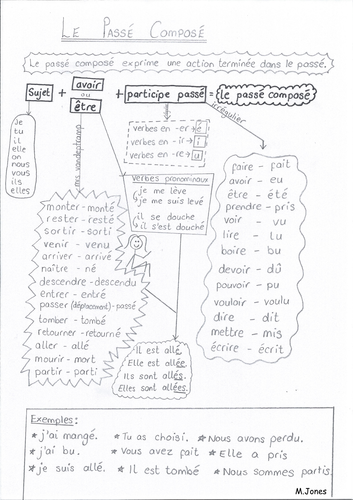 LE PASSÉ COMPOSÉ
Le passé composé exprime une action terminée dans le passé.
Sujet + avoir ou être + participe passé = le passé composé
Je
tu
il
elle
on
nous
vous
ils
elles
mrs vandeptramp
irrégulier
verbes en -er → é
verbes en -ir → i
verbes en -re → u
verbes pronominaux
je me lève
je me suis levé
il se douche
il s'est douché
monter - monté
rester - resté
sortir - sorti
venir - venu
arriver - arrivé
naître - né
descendre - descendu
entrer - entré
passer (déplacement) - passé
tomber - tombé
retourner - retourné
aller - allé
mourir - mort
partir - parti
faire - fait
avoir - eu
être - été
prendre - pris
voir - vu
lire - lu
boire - bu
devoir - dû
pouvoir - pu
vouloir - voulu
dire - dit
mettre - mis
écrire - écrit
Il est allé.
Elle est allée.
Ils sont allés.
Elles sont allées.
Exemples:
* j'ai mangé. * Tu as choisi. * Nous avons perdu.
* j'ai bu. * Vous avez fait * Elle a pris
* je suis allé. * Il est tombé * Nous sommes partis.
M.Jones